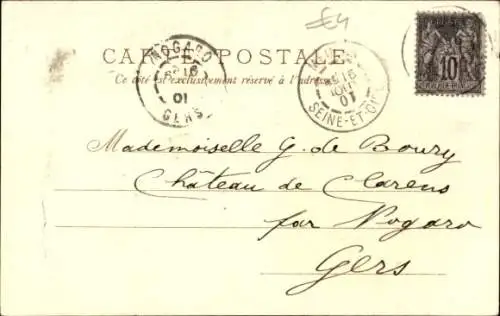 £4
CARTE POSTALE
Ce côté est exclusivement réservé à l'adresse
NOGARO
16
01
GERS
15
01
SEINE-ET-OISE
POSTE
10
Mademoiselle G. de Boury
Château de Clarens
par Nogaro
Gers